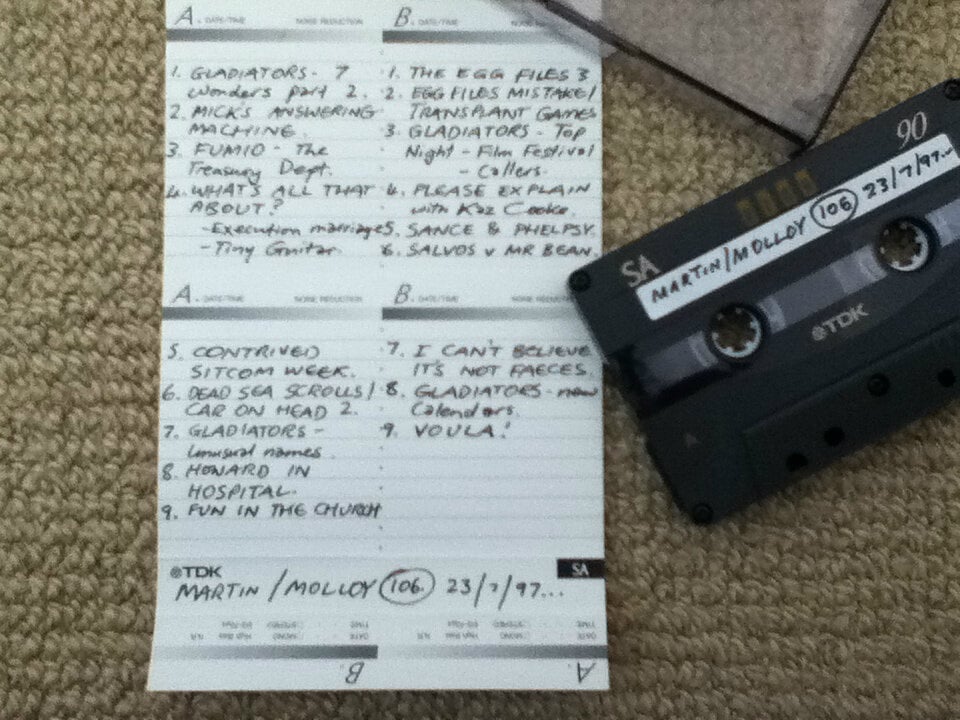 A. DATE/TIME NOISE REDUCTION
1. GLADIATORS - 7
Wonders part 2.
2. MICK'S ANSWERING
MACHINE.
3. FUMIO - The
Treasury Dept.
4. WHAT'S ALL THAT
ABOUT?
- Execution marriages
- Tiny Guitar
B. DATE/TIME NOISE REDUCTION
1. THE EGG FILES 3
2. EGG FILES MISTAKE/
TRANSPLANT GAMES
3. GLADIATORS - Top
Night - Film Festival
- Callers.
4. PLEASE EXPLAIN
with Kaz Cooke.
5. SANCE & PHELPSY.
6. SALVOS v MR BEAN.
A. DATE/TIME NOISE REDUCTION
5. CONTRIVED
SITCOM WEEK.
6. DEAD SEA SCROLLS/
CAR ON HEAD 2.
7. GLADIATORS -
Unusual names
8. HOWARD IN
HOSPITAL.
9. FUN IN THE CHURCH
B. DATE/TIME NOISE REDUCTION
7. I CAN'T BELIEVE
IT'S NOT FAECES.
8. GLADIATORS - new
Calendars.
9. VOULA!
TDK SA
MARTIN/MOLLOY 106. 23/7/97...
A.
B.
DATE
TIME
N.R.
90
SA
MARTIN/MOLLOY 106. 23/7/97...
TDK
A